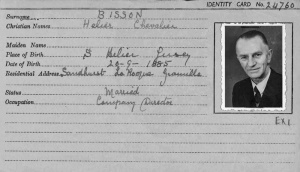 IDENTITY CARD No. 24760
Surname BISSON
Christian Name Helier Chevalier
Maiden Name
Place of Birth St Helier Jersey
Date of Birth 20-9-1885
Residential Address Sandhurst La Rocque Grouville
Status Married
Occupation Company Director